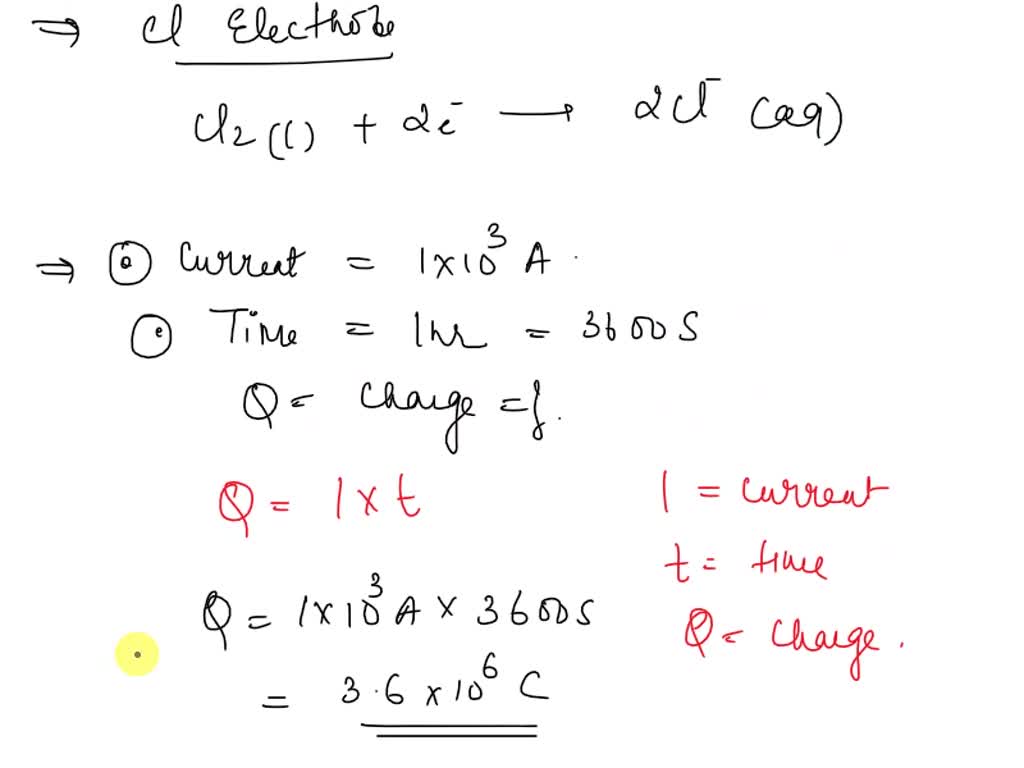 ⇒ Cl Electrode
Cl2 (l) + 2e⁻ ⟶ 2Cl⁻ (aq)
⇒ Current = 1×10³ A.
Time = 1hr = 3600 S
Q = Charge = ?.
Q = I × t
I = current
t = time
Q = Charge.
Q = 1×10³ A × 3600 S
= 3.6 × 10⁶ C